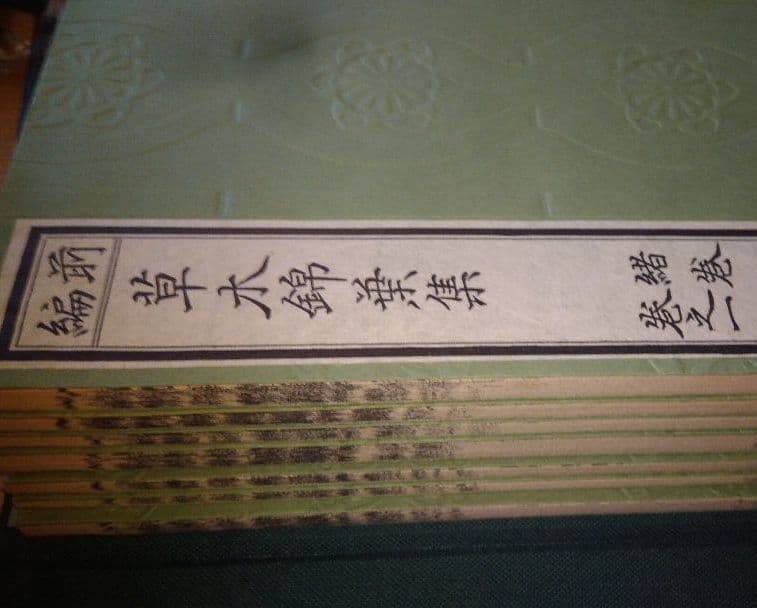 前編
草木錦葉集
緒巻
巻之一